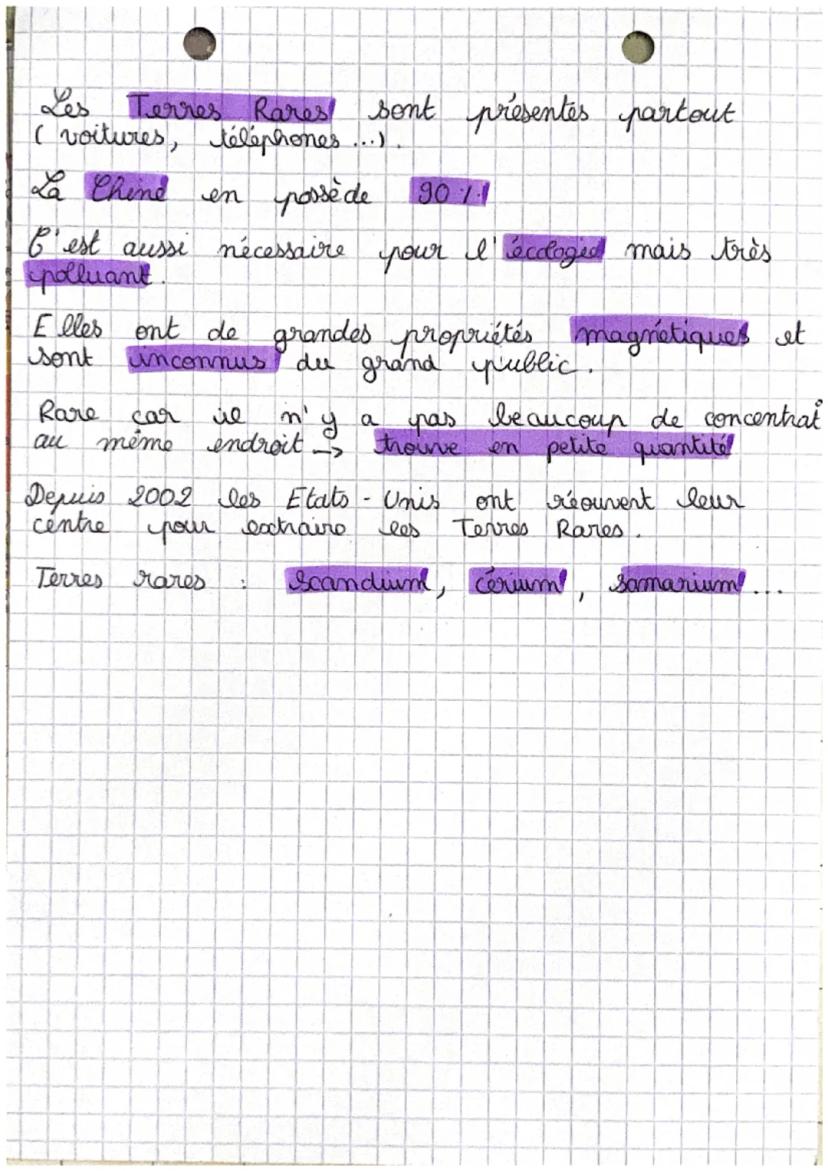 Les Terres Rares sont présentes partout
(voitures, téléphones ...).
La Chine en possède 90 %
C'est aussi nécessaire pour l'écologie mais très
polluant.
Elles ont de grandes propriétés magnétiques et
sont inconnus du grand public.
Rare car il n'y a pas beaucoup de concentrat°
au même endroit -> trouve en petite quantité
Depuis 2002 les Etats-Unis ont réouvert leur
centre pour extraire les Terres Rares.
Terres rares : scandium, cérium, samarium...